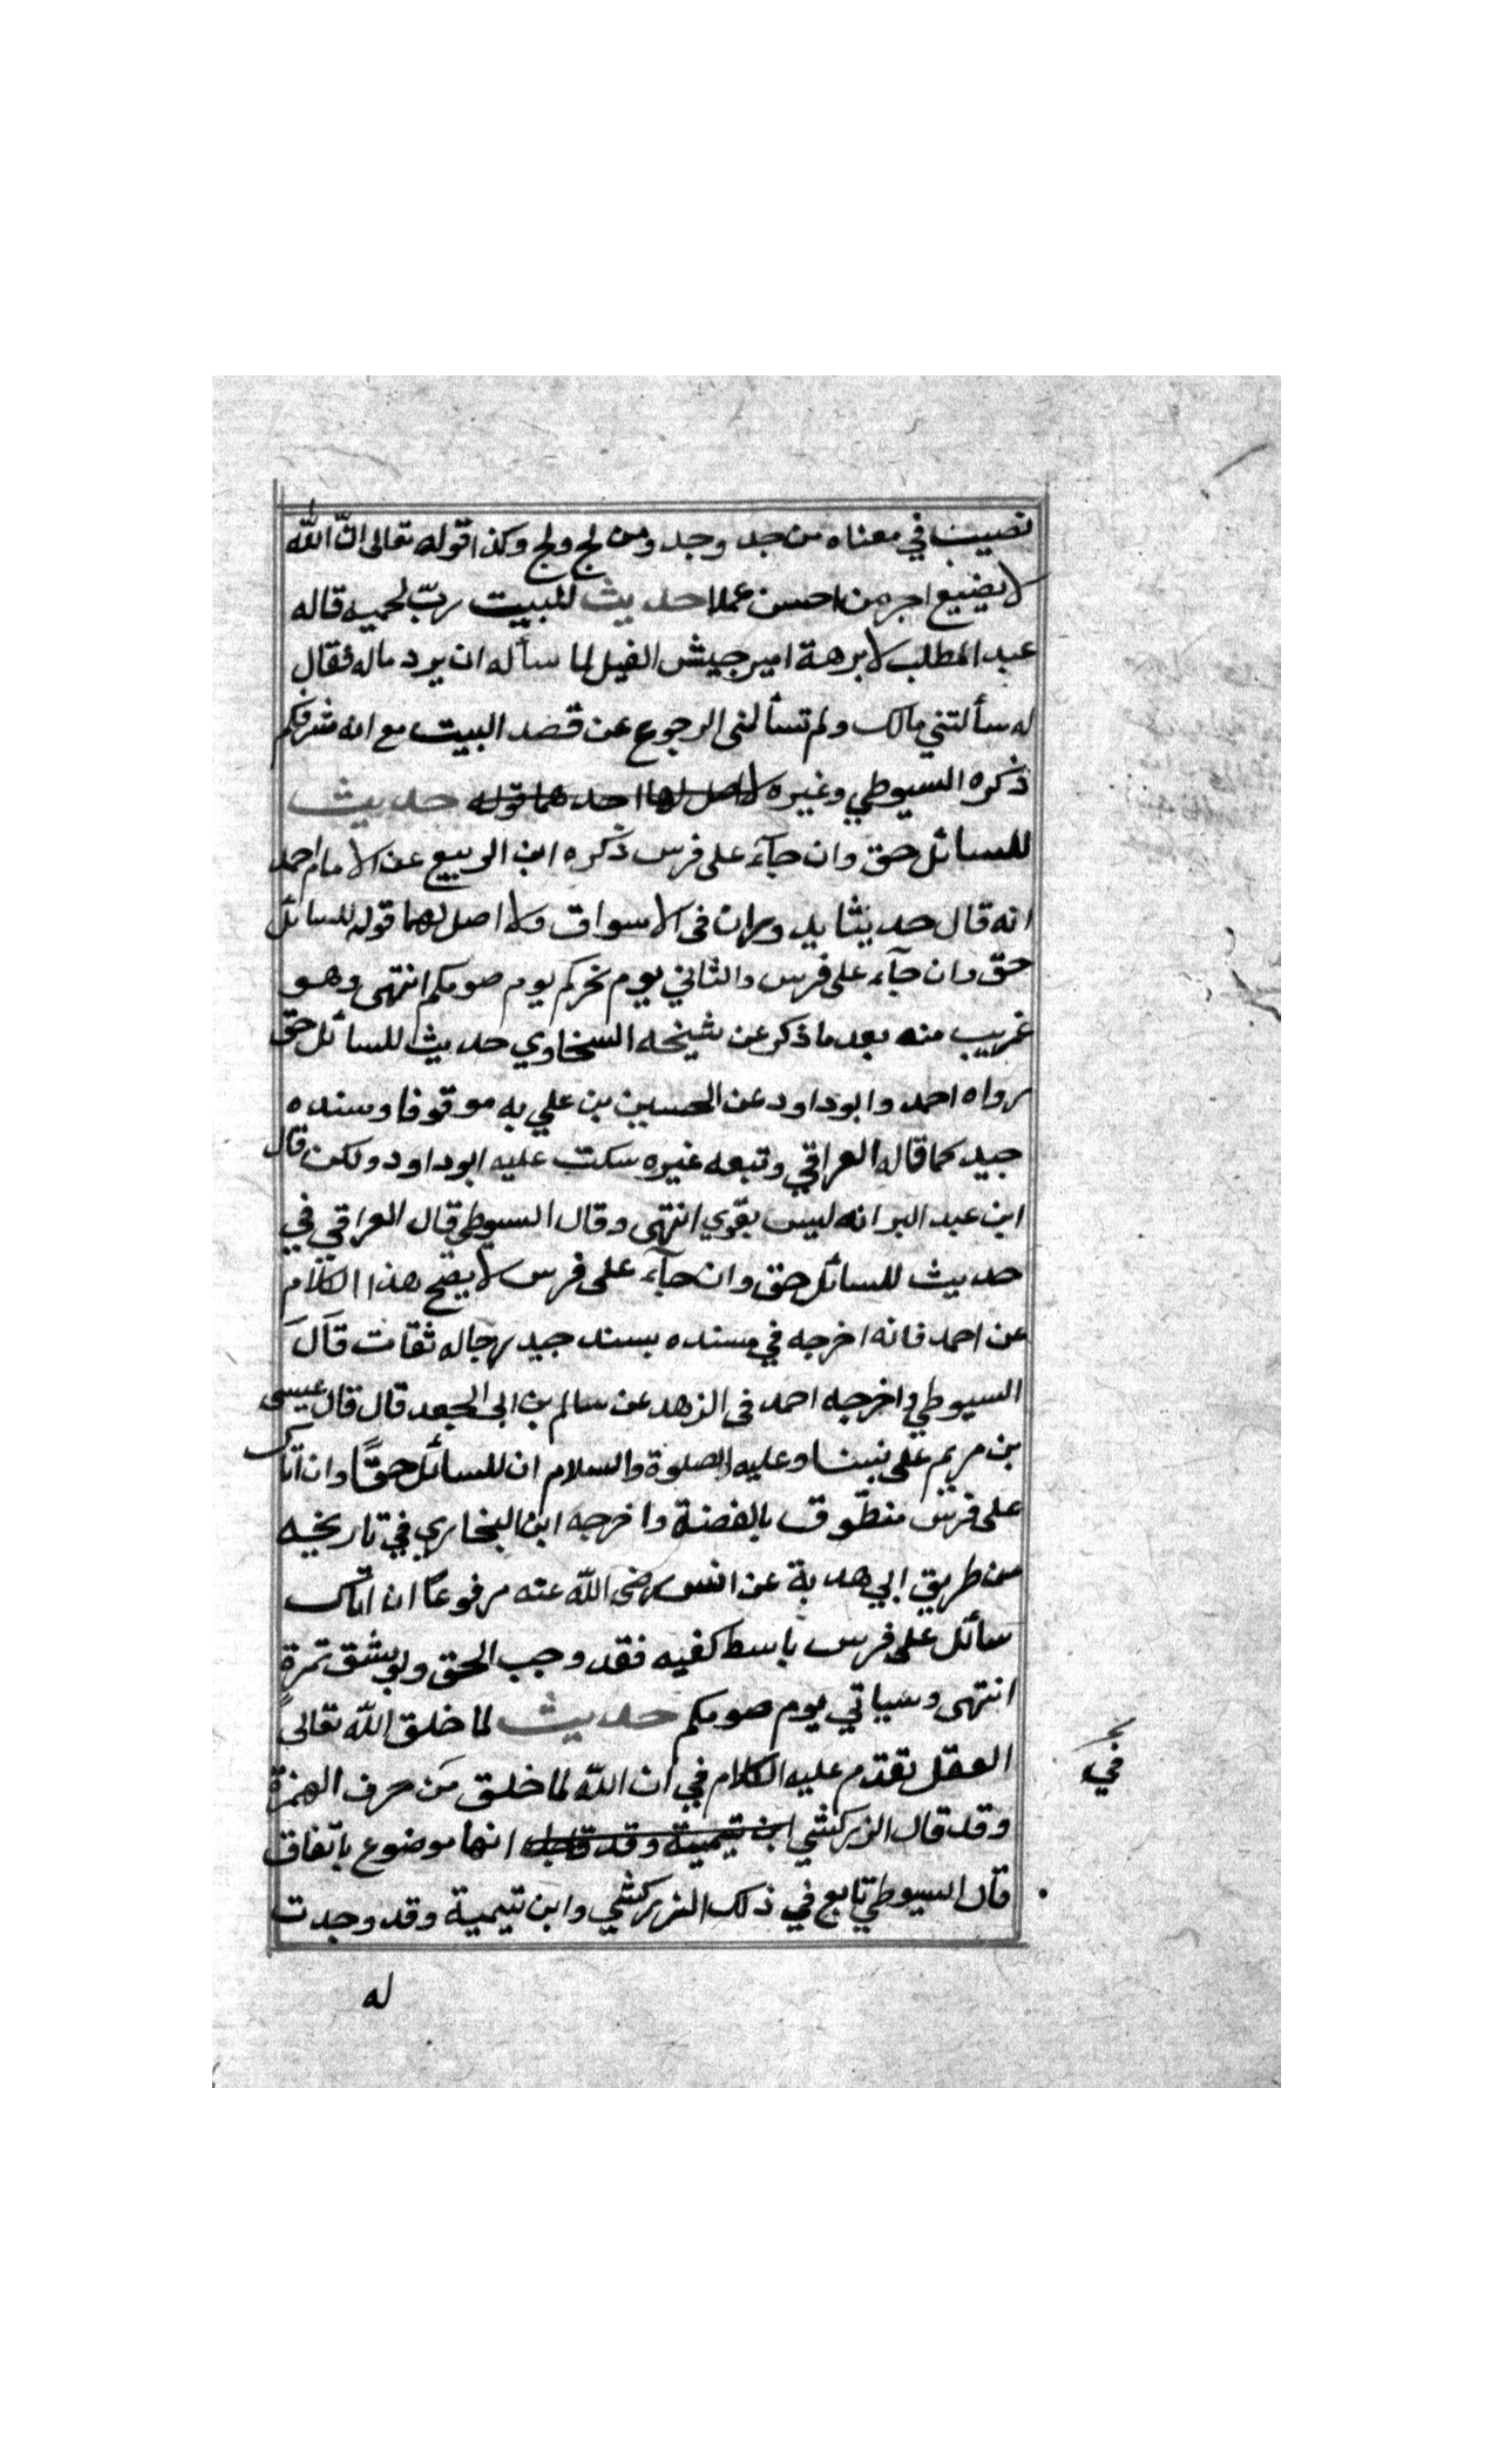 نصيب في معناه من جد وجد ومن لج ولج وكذا قوله تعالى ان الله
لا يضيع اجر من احسن عملا حديث للبيت رب يحميه قاله
عبد المطلب لابرهة امير جيش الفيل لما سأله ان يرد ماله فقال
له سألتني مالك ولم تسألنى الرجوع عن قصد البيت مع انه شرفكم
ذكره السيوطي وغيره لا اصل لها احدهما قوله حديث
للسائل حق وان جآء على فرس ذكره ابن الربيع عن الامام احمد
انه قال حديثا يدوران فى الاسواق ولا اصل لهما قوله للسائل
حق وان جآء على فرس والثاني يوم نحركم يوم صومكم انتهى وهو
غريب منه بعد ما ذكر عن شيخه السخاوي حديث للسائل حق
رواه احمد وابو داود عن الحسين بن علي به موقوفا وسنده
جيد كما قاله العراقي وتبعه غيره سكت عليه ابو داود ولكن قال
ابن عبد البر انه ليس بقوي انتهى وقال السيوطي قال العراقي في
حديث للسائل حق وان جآء على فرس لا يصح هذا الكلام
عن احمد فانه اخرجه في مسنده بسند جيد رجاله ثقات قال
السيوطي واخرجه احمد فى الزهد عن سالم بن ابى الجعد قال قال عيسى
بن مريم على نبينا وعليه الصلوة والسلام ان للسائل حقًا وان اتاك
على فرس منطّوق بالفضة واخرجه ابن البخاري في تاريخه
من طريق ابي هدبة عن انس رضى الله عنه مرفوعًا ان اتاك
سائل على فرس باسط كفيه فقد وجب الحق ولو بشق تمرة
انتهى وسياتي يوم صومكم حديث لما خلق الله تعالى
العقل تقدم عليه الكلام في ان الله لما خلق من حرف الهمزة
وقد قال الزركشي ابن تيمية وقد انها موضوع باتفاق
قال السيوطي تابع في ذلك الزركشي وابن تيمية وقد وجدت
له
في